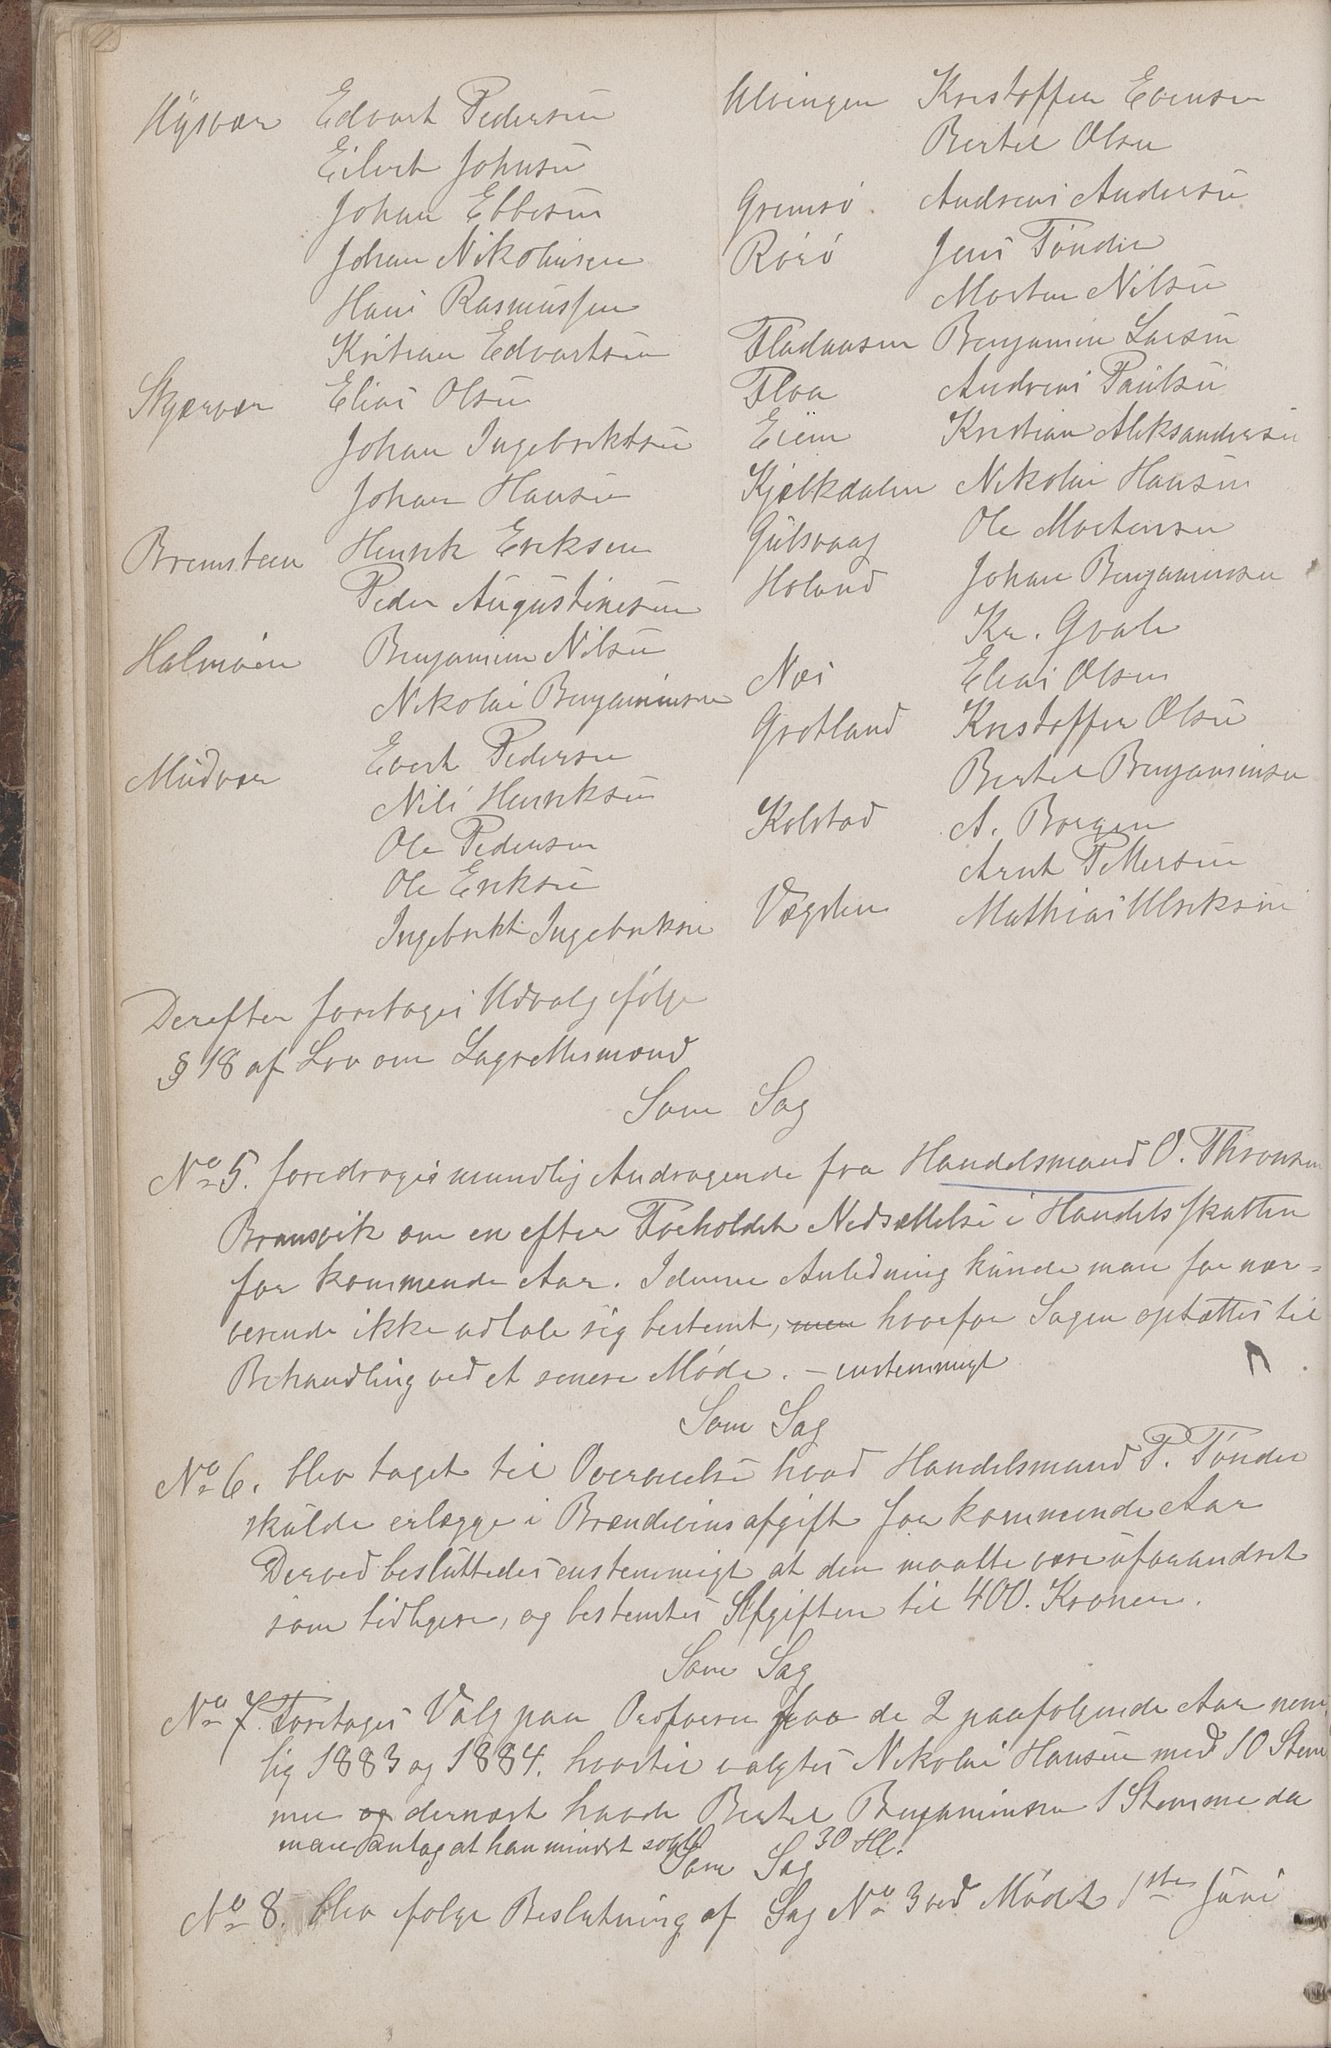 Hysvær Edvart Pedersen
Eilert Johnsen
Johan Ebbesen
Johan Nikolaisen
Hans Rasmussen
Kristian Edvartsen
Skjærvær Elias Olsen
Johan Ingebriktsen
Johan Hansen
Bremstein Henrik Eriksen
Peder Augustinesen
Halmøen Benjamin Nilsen
Nikolai Benjaminsen
Mudvær Evert Pedersen
Nils Henriksen
Ole Pedersen
Ole Eriksen
Ingebrikt Ingebriksen
Ulvingen Kristoffer Evensen
Bertel Olsen
Gremsø Andreas Andersen
Rørø Jens Tønder
Morten Nilsen
Fladaasen Benjamin Larsen
Floa Andreas Paulsen
Eiem Kristian Aleksandersen
Kjælkdalen Nikolai Hansen
Gulsvaag Ole Mortensen
Holand Johan Benjaminsen
Kr. Qvale
Næs Elias Olsen
Grotland Kristoffer Olsen
Bertel Benjaminsen
Kolstad A. Borgen
Arnt Pettersen
Vægsten Mathias Ulriksen
Derefter foretoges Udvalg ifølge
§ 18 af Lov om Lagrettesmænd
Som Sag
No 5. foredroges mundlig Andragende fra Handelsmand O. Thronsen
Brandsvik om en efter Forholdet Nedsættelse i Handelsskatten
for kommende Aar. I denne Anledning kunde man for nær-
værende ikke udtale sig bestemt, men hvorfor Sagen opsættes til
Behandling ved et senere Møde. – enstemmigt
Som Sag
No 6. blev taget til Overveielse hvad Handelsmand P. Tønder
skulde erlægge i Brændevinsafgift for kommende Aar
Derved besluttedes enstemmigt at den maatte være uforandret
som tidligere, og bestemtes Afgiften til 400. Kroner.
Som Sag
No 7. Foretoges Valg paa Ordfører for de 2 paafølgende Aar nem-
lig 1883 og 1884. hvortil valgtes Nikolai Hansen med 10 Stem
mer og dernæst havde Bertel Benjaminsen 1 Stemme da
man antog at han mindst solgte 30 Hl.
Som Sag
No 8. blev ifølge Beslutning af Sag No 3 ved Mødet 1ste Juni